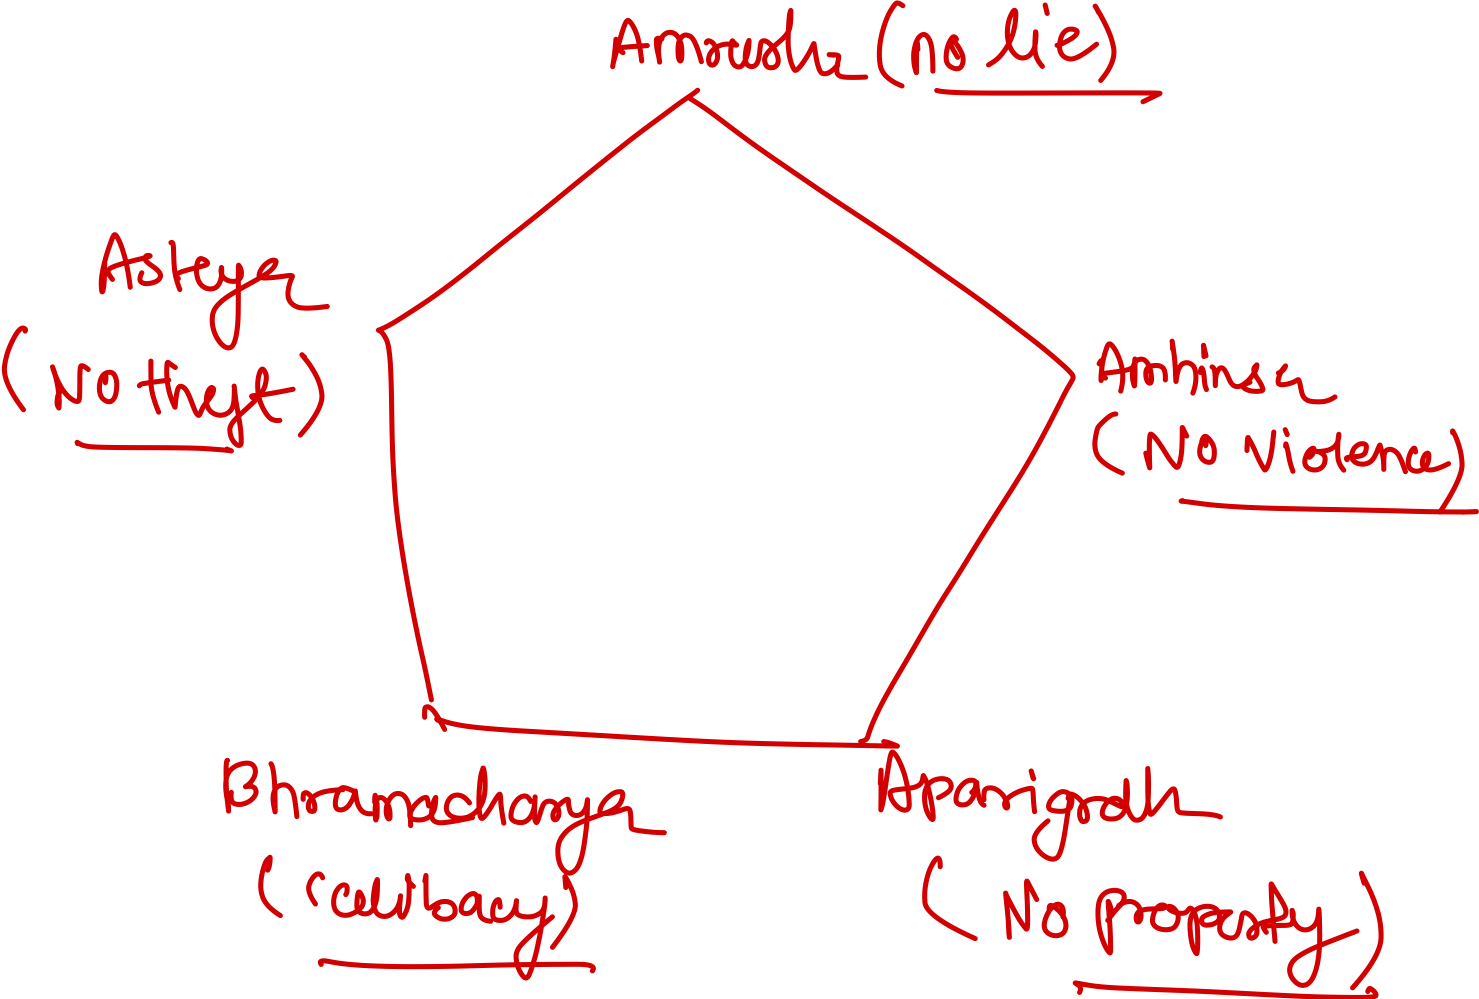 Amrusha (no lie)
Asteya
(No theft)
Amhinsa
(No Violence)
Bhramacharya
(celibacy)
Aparigrah
(No property)